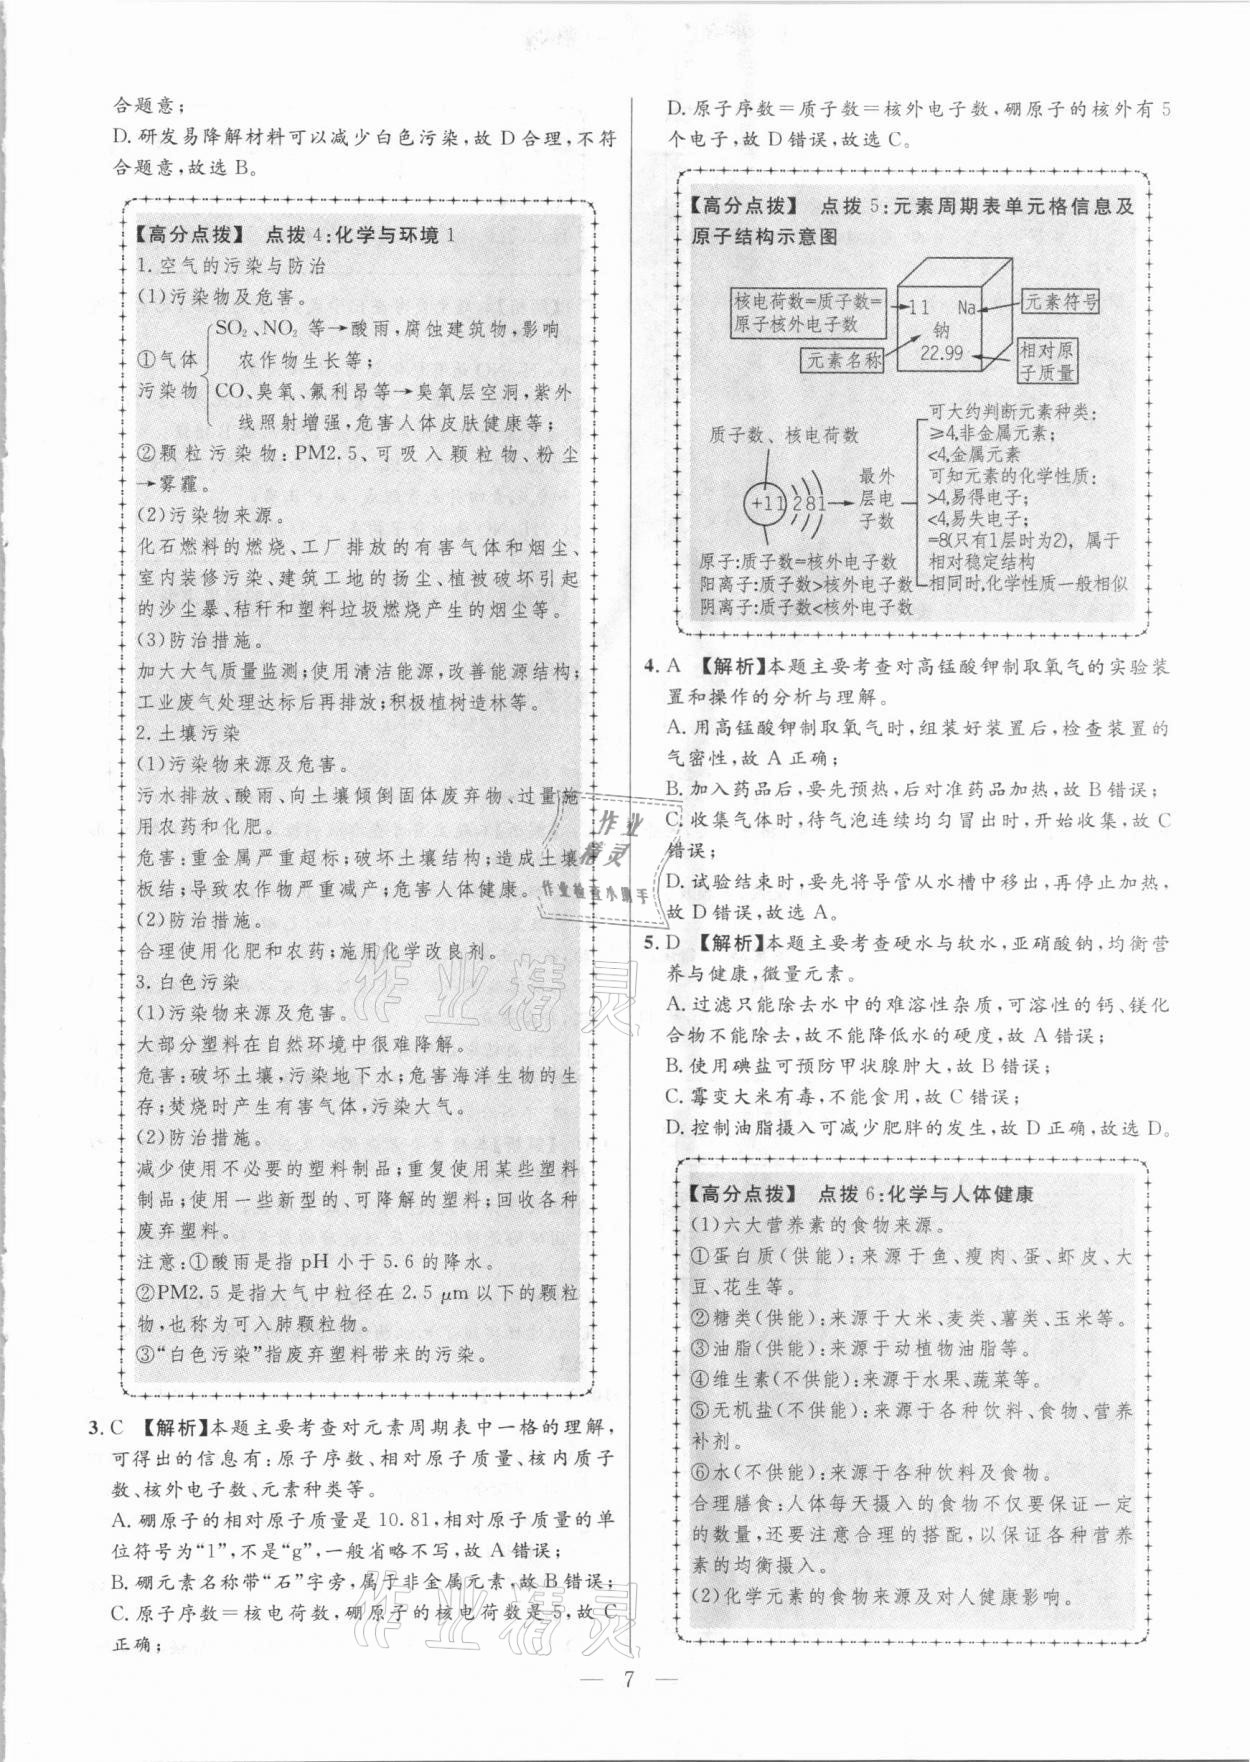 合题意;
D. 研发易降解材料可以减少白色污染,故 D 合理,不符
合题意,故选 B。
【高分点拨】 点拨 4:化学与环境 1
1.空气的污染与防治
(1)污染物及危害。
①气体
污染物
SO₂、NO₂ 等→酸雨,腐蚀建筑物,影响
农作物生长等;
CO、臭氧、氟利昂等→臭氧层空洞,紫外
线照射增强,危害人体皮肤健康等;
②颗粒污染物:PM2.5、可吸入颗粒物、粉尘
→雾霾。
(2)污染物来源。
化石燃料的燃烧、工厂排放的有害气体和烟尘、
室内装修污染、建筑工地的扬尘、植被破坏引起
的沙尘暴、秸秆和塑料垃圾燃烧产生的烟尘等。
(3)防治措施。
加大大气质量监测;使用清洁能源,改善能源结构;
工业废气处理达标后再排放;积极植树造林等。
2.土壤污染
(1)污染物来源及危害。
污水排放、酸雨、向土壤倾倒固体废弃物、过量施
用农药和化肥。
危害:重金属严重超标;破坏土壤结构;造成土壤
板结;导致农作物严重减产;危害人体健康。
(2)防治措施。
合理使用化肥和农药;施用化学改良剂。
3.白色污染
(1)污染物来源及危害。
大部分塑料在自然环境中很难降解。
危害:破坏土壤,污染地下水;危害海洋生物的生
存;焚烧时产生有害气体,污染大气。
(2)防治措施。
减少使用不必要的塑料制品;重复使用某些塑料
制品;使用一些新型的、可降解的塑料;回收各种
废弃塑料。
注意:①酸雨是指 pH 小于 5.6 的降水。
②PM2.5 是指大气中粒径在 2.5 μm 以下的颗粒
物,也称为可入肺颗粒物。
③“白色污染”指废弃塑料带来的污染。
3. C 【解析】本题主要考查对元素周期表中一格的理解,
可得出的信息有:原子序数、相对原子质量、核内质子
数、核外电子数、元素种类等。
A. 硼原子的相对原子质量是 10.81,相对原子质量的单
位符号为“1”,不是“g”,一般省略不写,故 A 错误;
B. 硼元素名称带“石”字旁,属于非金属元素,故 B 错误;
C. 原子序数=核电荷数,硼原子的核电荷数是 5,故 C
正确;
D. 原子序数=质子数=核外电子数,硼原子的核外有 5
个电子,故 D 错误,故选 C。
【高分点拨】 点拨 5:元素周期表单元格信息及
原子结构示意图
核电荷数=质子数=
原子核外电子数
11 Na
钠
22.99
元素符号
元素名称
相对原
子质量
质子数、核电荷数
+11 2 8 1
最外
层电
子数
可大约判断元素种类:
≥4,非金属元素;
<4,金属元素
可知元素的化学性质:
>4,易得电子;
<4,易失电子;
=8(只有1层时为2),属于
相对稳定结构
相同时,化学性质一般相似
原子:质子数=核外电子数
阳离子:质子数>核外电子数
阴离子:质子数<核外电子数
4. A 【解析】本题主要考查对高锰酸钾制取氧气的实验装
置和操作的分析与理解。
A. 用高锰酸钾制取氧气时,组装好装置后,检查装置的
气密性,故 A 正确;
B. 加入药品后,要先预热,后对准药品加热,故 B 错误;
C. 收集气体时,待气泡连续均匀冒出时,开始收集,故 C
错误;
D. 试验结束时,要先将导管从水槽中移出,再停止加热,
故 D 错误,故选 A。
5. D 【解析】本题主要考查硬水与软水,亚硝酸钠,均衡营
养与健康,微量元素。
A. 过滤只能除去水中的难溶性杂质,可溶性的钙、镁化
合物不能除去,故不能降低水的硬度,故 A 错误;
B. 使用碘盐可预防甲状腺肿大,故 B 错误;
C. 霉变大米有毒,不能食用,故 C 错误;
D. 控制油脂摄入可减少肥胖的发生,故 D 正确,故选 D。
【高分点拨】 点拨 6:化学与人体健康
(1)六大营养素的食物来源。
①蛋白质(供能):来源于鱼、瘦肉、蛋、虾皮、大
豆、花生等。
②糖类(供能):来源于大米、麦类、薯类、玉米等。
③油脂(供能):来源于动植物油脂等。
④维生素(不供能):来源于水果、蔬菜等。
⑤无机盐(不供能):来源于各种饮料、食物、营养
补剂。
⑥水(不供能):来源于各种饮料及食物。
合理膳食:人体每天摄入的食物不仅要保证一定
的数量,还要注意合理的搭配,以保证各种营养
素的均衡摄入。
(2)化学元素的食物来源及对人健康影响。
作业
精灵
作业检查小助手
作业精灵
作业精灵
— 7 —